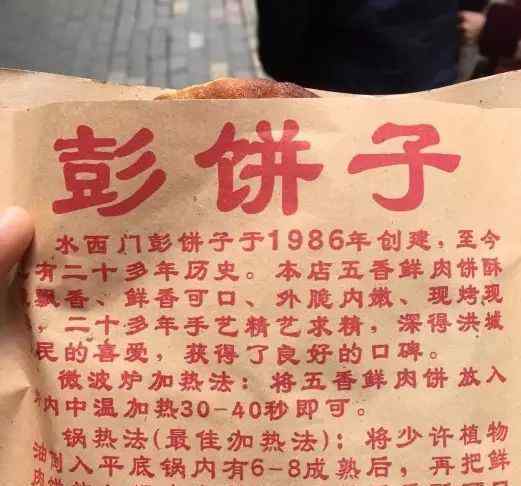 彭饼子
水西门彭饼子于1986年创建,至今
有二十多年历史。本店五香鲜肉饼酥
飘香、鲜香可口、外脆内嫩、现烤现
,二十多年手艺精艺求精,深得洪城
民的喜爱,获得了良好的口碑。
微波炉加热法:将五香鲜肉饼放入
内中温加热30-40秒即可。
锅热法(最佳加热法):将少许植物
油倒入平底锅内有6-8成熟后,再把鲜